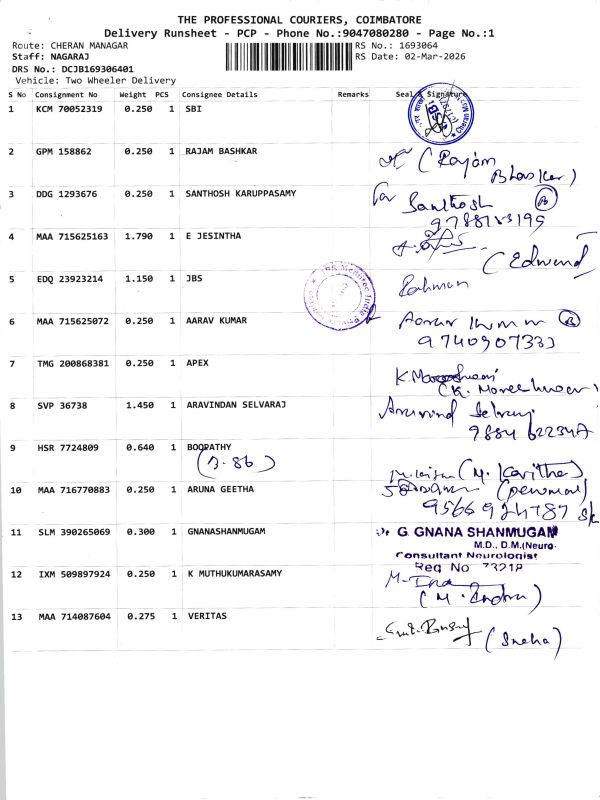 THE PROFESSIONAL COURIERS, COIMBATORE
Delivery Runsheet - PCP - Phone No.:9047080280 - Page No.:1
Route: CHERAN MANAGAR RS No.: 1693064
Staff: NAGARAJ RS Date: 02-Mar-2026
DRS No.: DCJB169306401
Vehicle: Two Wheeler Delivery
S No Consignment No Weight PCS Consignee Details Remarks Seal & Signature
1 KCM 70052319 0.250 1 SBI
2 GPM 158862 0.250 1 RAJAM BASHKAR
(Rajam
Bhaskar)
3 DDG 1293676 0.250 1 SANTHOSH KARUPPASAMY
for Santhosh
9788183199
4 MAA 715625163 1.790 1 E JESINTHA
(Edwind
5 EDQ 23923214 1.150 1 JBS
Rahman
6 MAA 715625072 0.250 1 AARAV KUMAR
Aarav Kumar
9740907333
7 TMG 200868381 0.250 1 APEX
(K. Mareeshwari)
8 SVP 36738 1.450 1 ARAVINDAN SELVARAJ
Aravind Selvaraj
9 HSR 7724809 0.640 1 BOOPATHY
(B-86)
(M. Kavitha)
10 MAA 716770883 0.250 1 ARUNA GEETHA
(perumal)
9566924787
11 SLM 390265069 0.300 1 GNANASHANMUGAM
Dr G. GNANA SHANMUGAM
M.D., D.M.(Neuro
Consultant Neurologist
Reg No 73218
12 IXM 509897924 0.250 1 K MUTHUKUMARASAMY
M-Indra
(M. Indra)
13 MAA 714087604 0.275 1 VERITAS
(Sneha)